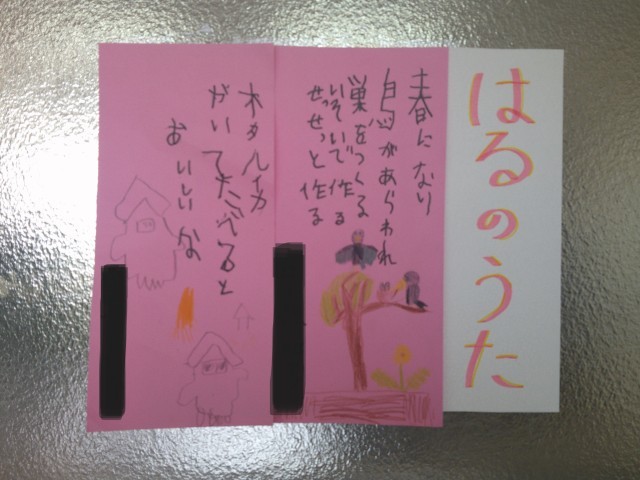 はるのうた
春になり
鳥があらわれ
巣をつくる
いそいで作る
せっせと作る
ホタルイカ
がいてたべると
おいしいな